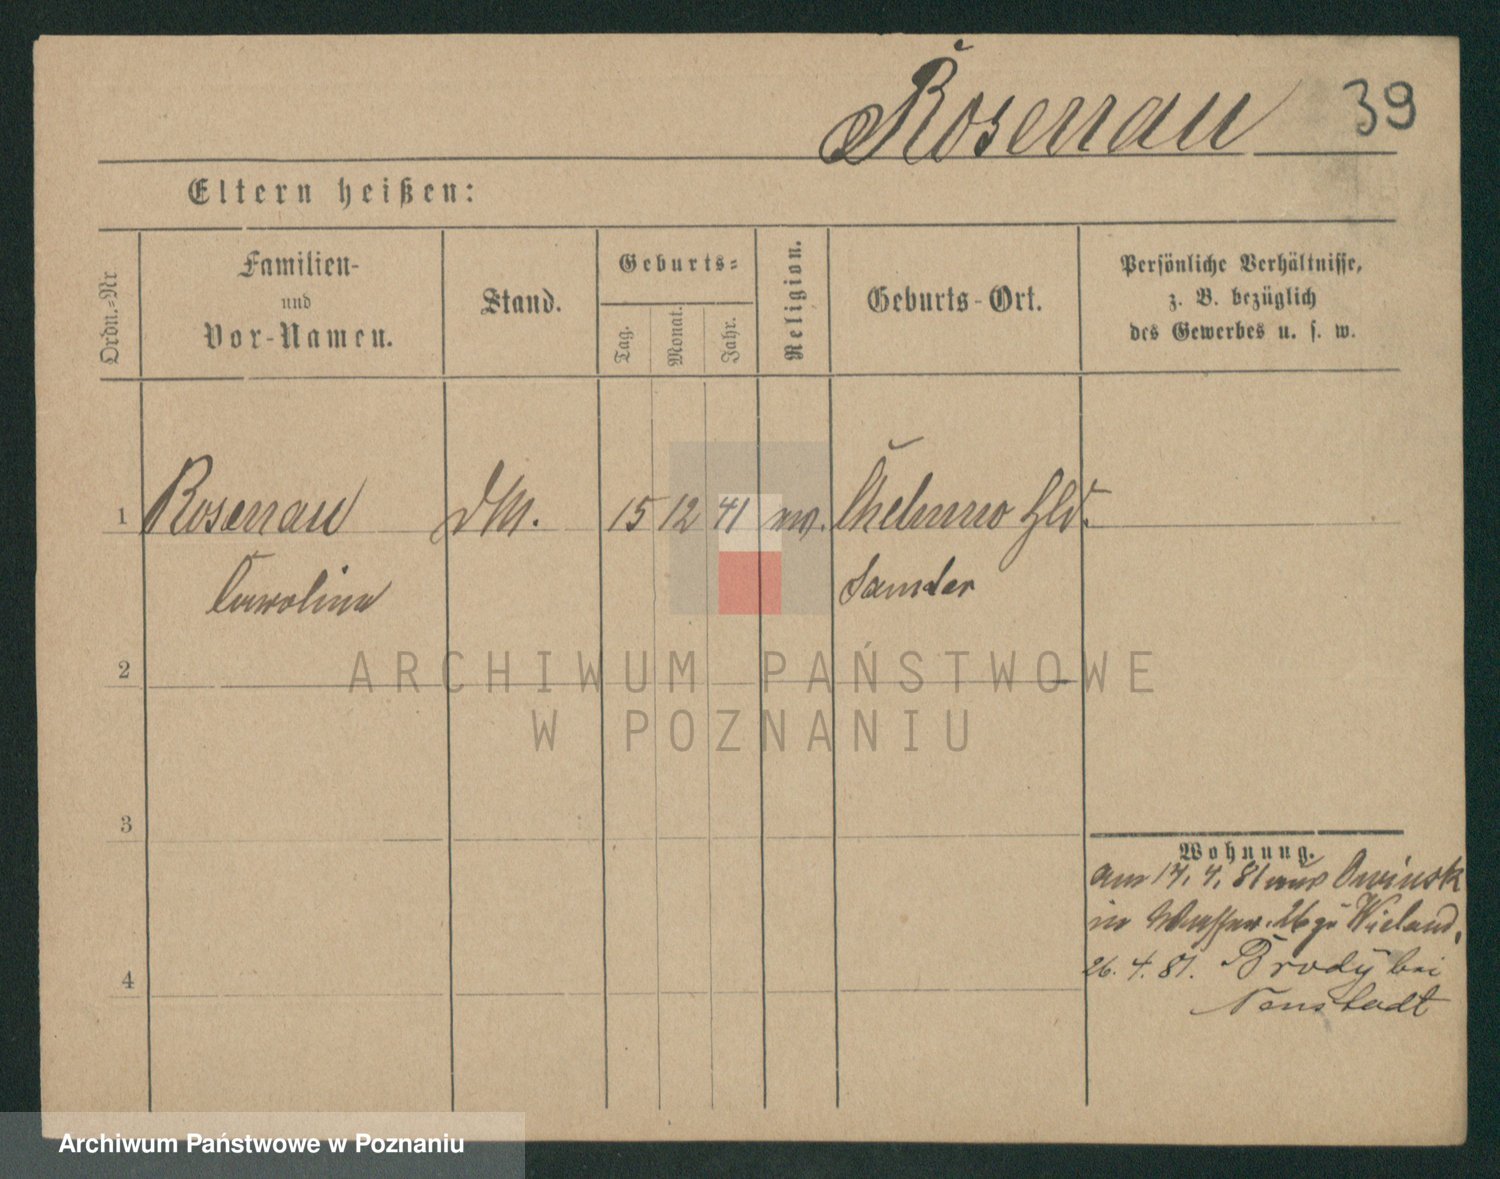 Rosenau 39
Eltern heißen:
Ordn.-Nr
Familien-
und
Vor-Namen.
Stand.
Geburts-
Tag.
Monat.
Jahr.
Religion.
Geburts-Ort.
Persönliche Verhältnisse,
z. B. bezüglich
des Gewerbes u. s. w.
1 Rosenau 15 12 41 Chelmno Hld.
Carolina Samter
2
3
4
Wohnung.
am 17. 4. 81 aus Owinsk
in 26 zu Wieland.
26. 4. 81. Brody bei
Neustadt
ARCHIWUM PAŃSTWOWE
W POZNANIU
Archiwum Państwowe w Poznaniu